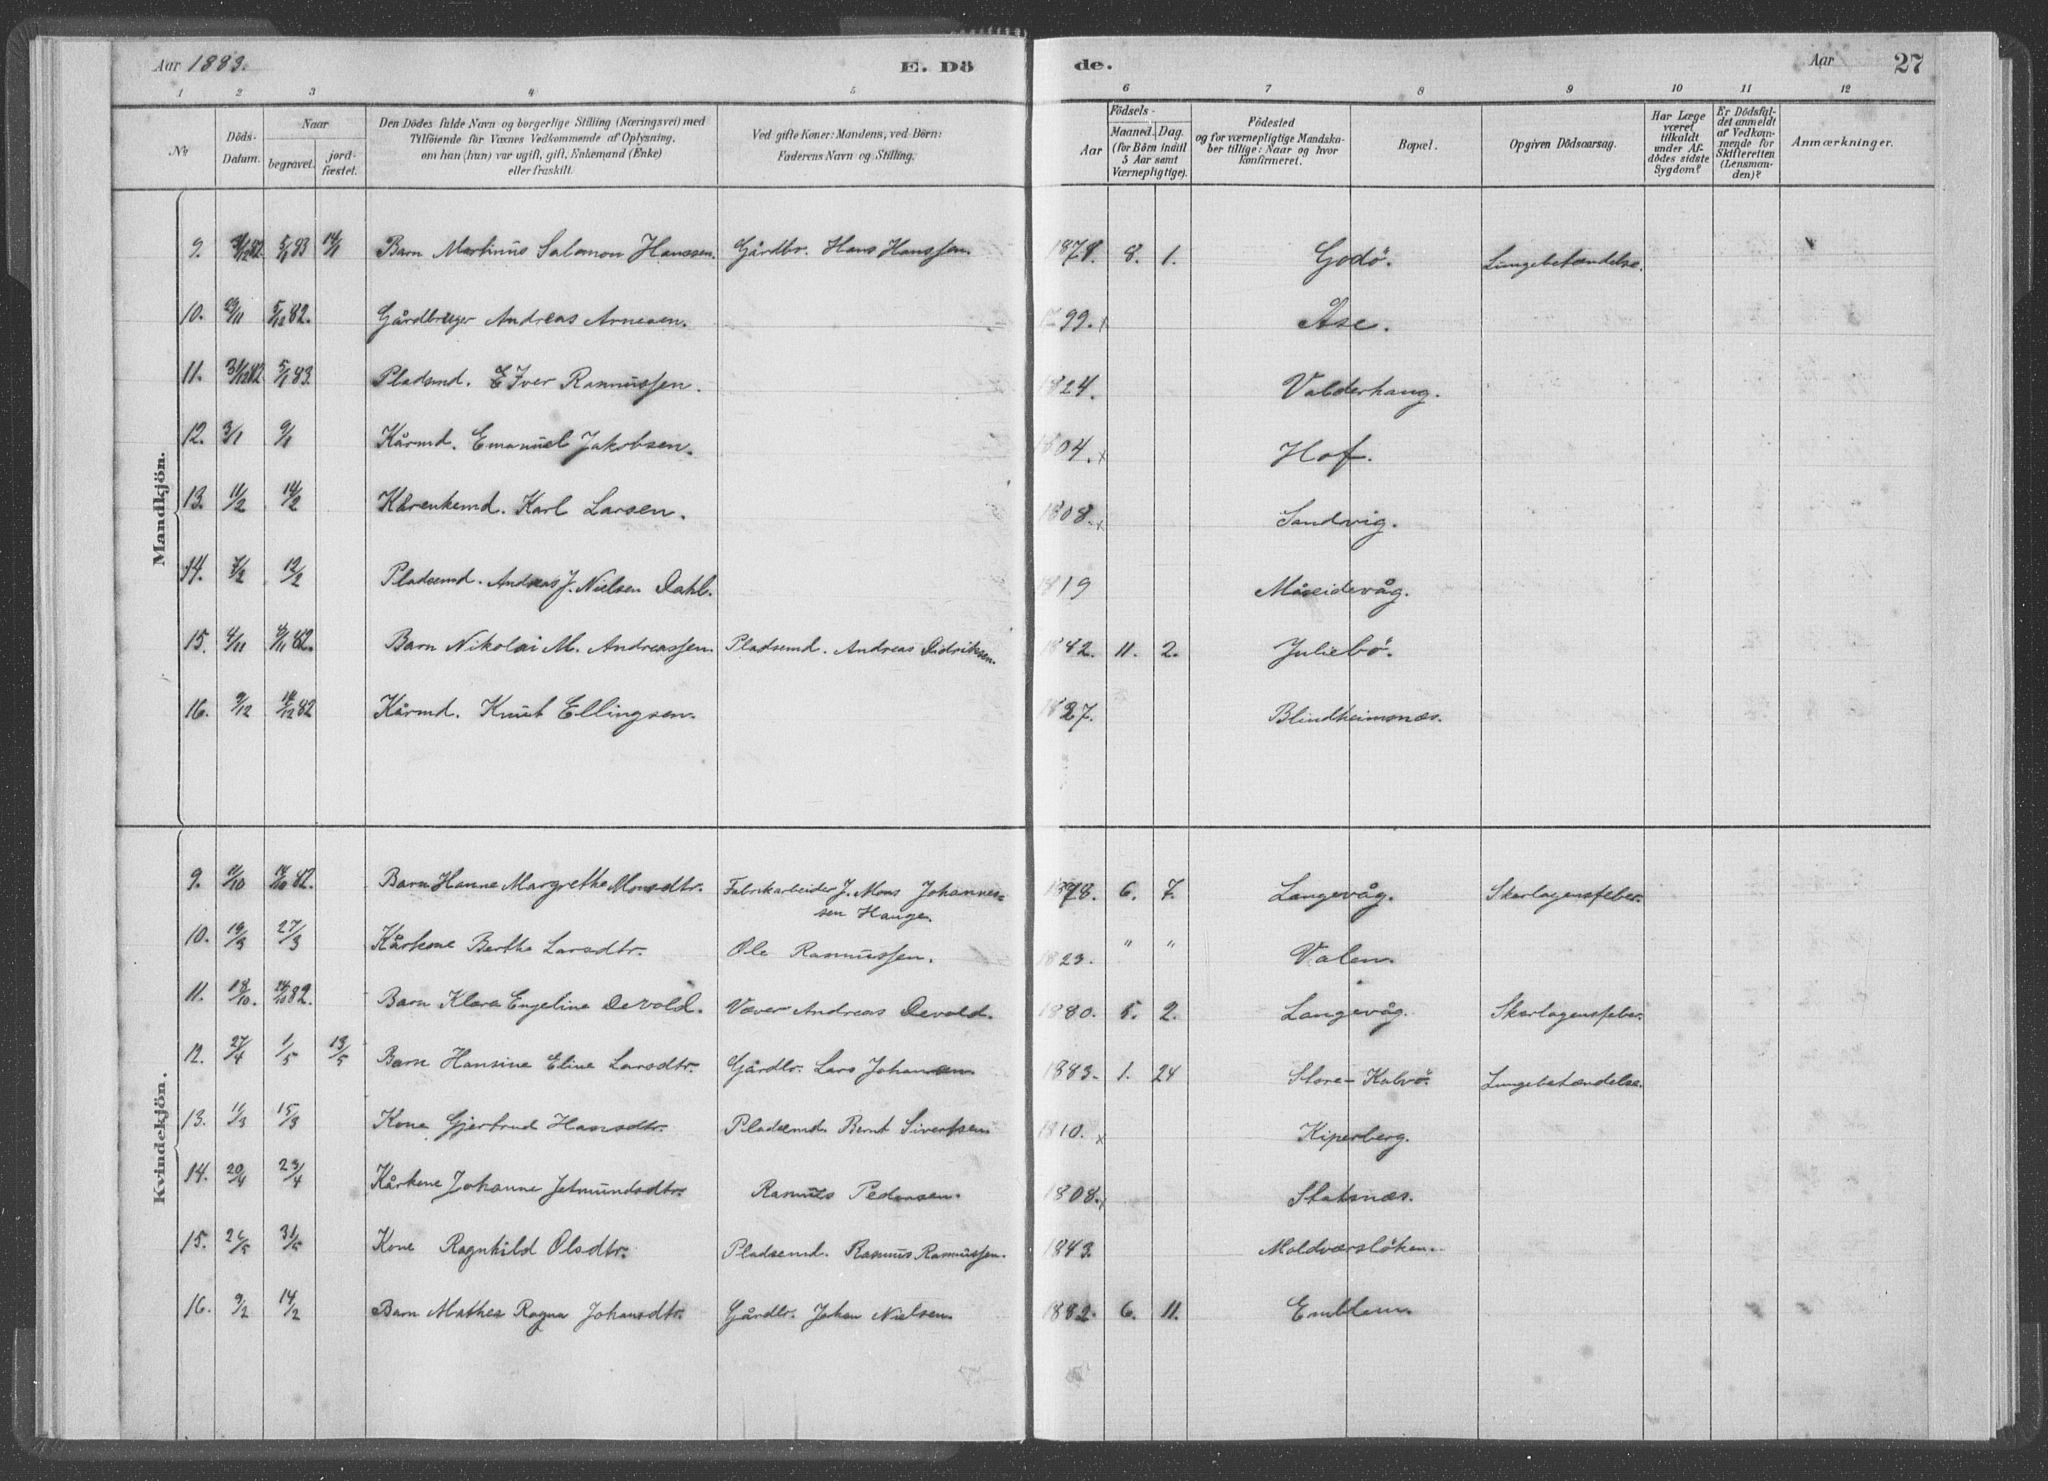 Aar 1883. E. Dö
de. Aar 27
1 2 3 4 5 6 7 8 9 10 11 12
No Döds-Datum. Naar begravet. jord-fæstet. Den Dödes fulde Navn og borgerlige Stilling (Næringsvei) med Tilföiende for Voxnes Vedkommende af Oplysning, om han (hun) var ugift, gift, Enkemand (Enke) eller fraskilt. Ved gifte Koner: Mandens, ved Börn: Faderens Navn og Stilling. Födsels- Aar Maaned. Dag. (for Börn indtil 5 Aar samt Værnepligtige). Födested og for værnepligtige Mandska-ber tillige: Naar og hvor konfirmeret. Bopæl. Opgiven Dödsaarsag. Har Læge været tilkaldt under Af-dödes sidste Sygdom? Er Dödsfal-det anmeldt af Vedkom-mende for Skifteretten (Lensman-den)? Anmærkninger.
Mandkjön.
9. 5/1 83 14/1 Barn Martinus Salamon Hanssen. Gårdbr. Hans Hanssen. 1878. 8. 1. Godö. Lungebetændelse.
10. 29/11 5/12 82. Gårdbruger Andreas Arnesen. 1799. x Åse.
11. 31/12 82 5/1 83. Pladsmd. Iver Rasmussen. 1824. Valderhaug.
12. 3/1 9/1 Kårmd. Emanuel Jakobsen. 1804. x Hof.
13. 11/2 14/2 Kårenkemd. Karl Larsen. 1808. x Sandvig.
14. 7/2 12/2 Pladsemd. Andreas J. Nielsen Dahl. 1819 Måseidevåg.
15. 4/11 8/11 82. Barn Nikolai M. Andreassen. Pladsemd. Andreas Didriksen. 1882. 11. 2. Juliebö.
16. 9/12 18/12 82 Kårmd. Knut Ellingsen. 1827. Blindheimsnæs.
Kvindekjön.
9. 11/10 14/10 82. Barn Hanne Margrethe Monsdtr. Fabrikarbeider J. Mons Johannes-
sen Hauge. 1878. 6. 7. Langevåg. Skarlagensfeber.
10. 19/3 27/3 Kårkone Berthe Larsdtr. Ole Rasmussen. 1823. " " Valen.
11. 18/10. 24/10 82. Barn Klara Engeline Devold. Væver Andreas Devold. 1880. 5. 2. Langevåg. Skarlagensfeber.
12. 27/4 1/5 13/5 Barn Hansine Eline Larsdtr. Gårdbr. Lars Johansen 1883. 1. 24 Store-Kalvö. Lungebetændelse.
13. 11/3 15/3 Kone Gjertrud Hansdtr. Pladsemd. Bernt Sivertsen 1810. x Kiperberg.
14. 20/4 23/4 Kårkone Johanne Jetmundsdtr. Rasmus Pedersen. 1808. Slatsnæs.
15. 26/5 31/5 Kone Ragnhild Olsdtr. Pladsemd. Rasmus Rasmussen. 1843. Moldværslöken.
16. 9/2 14/2 Barn Mathea Ragna Johansdtr. Gårdbr. Johan Nielsen. 1882. 6. 11. Emblem.